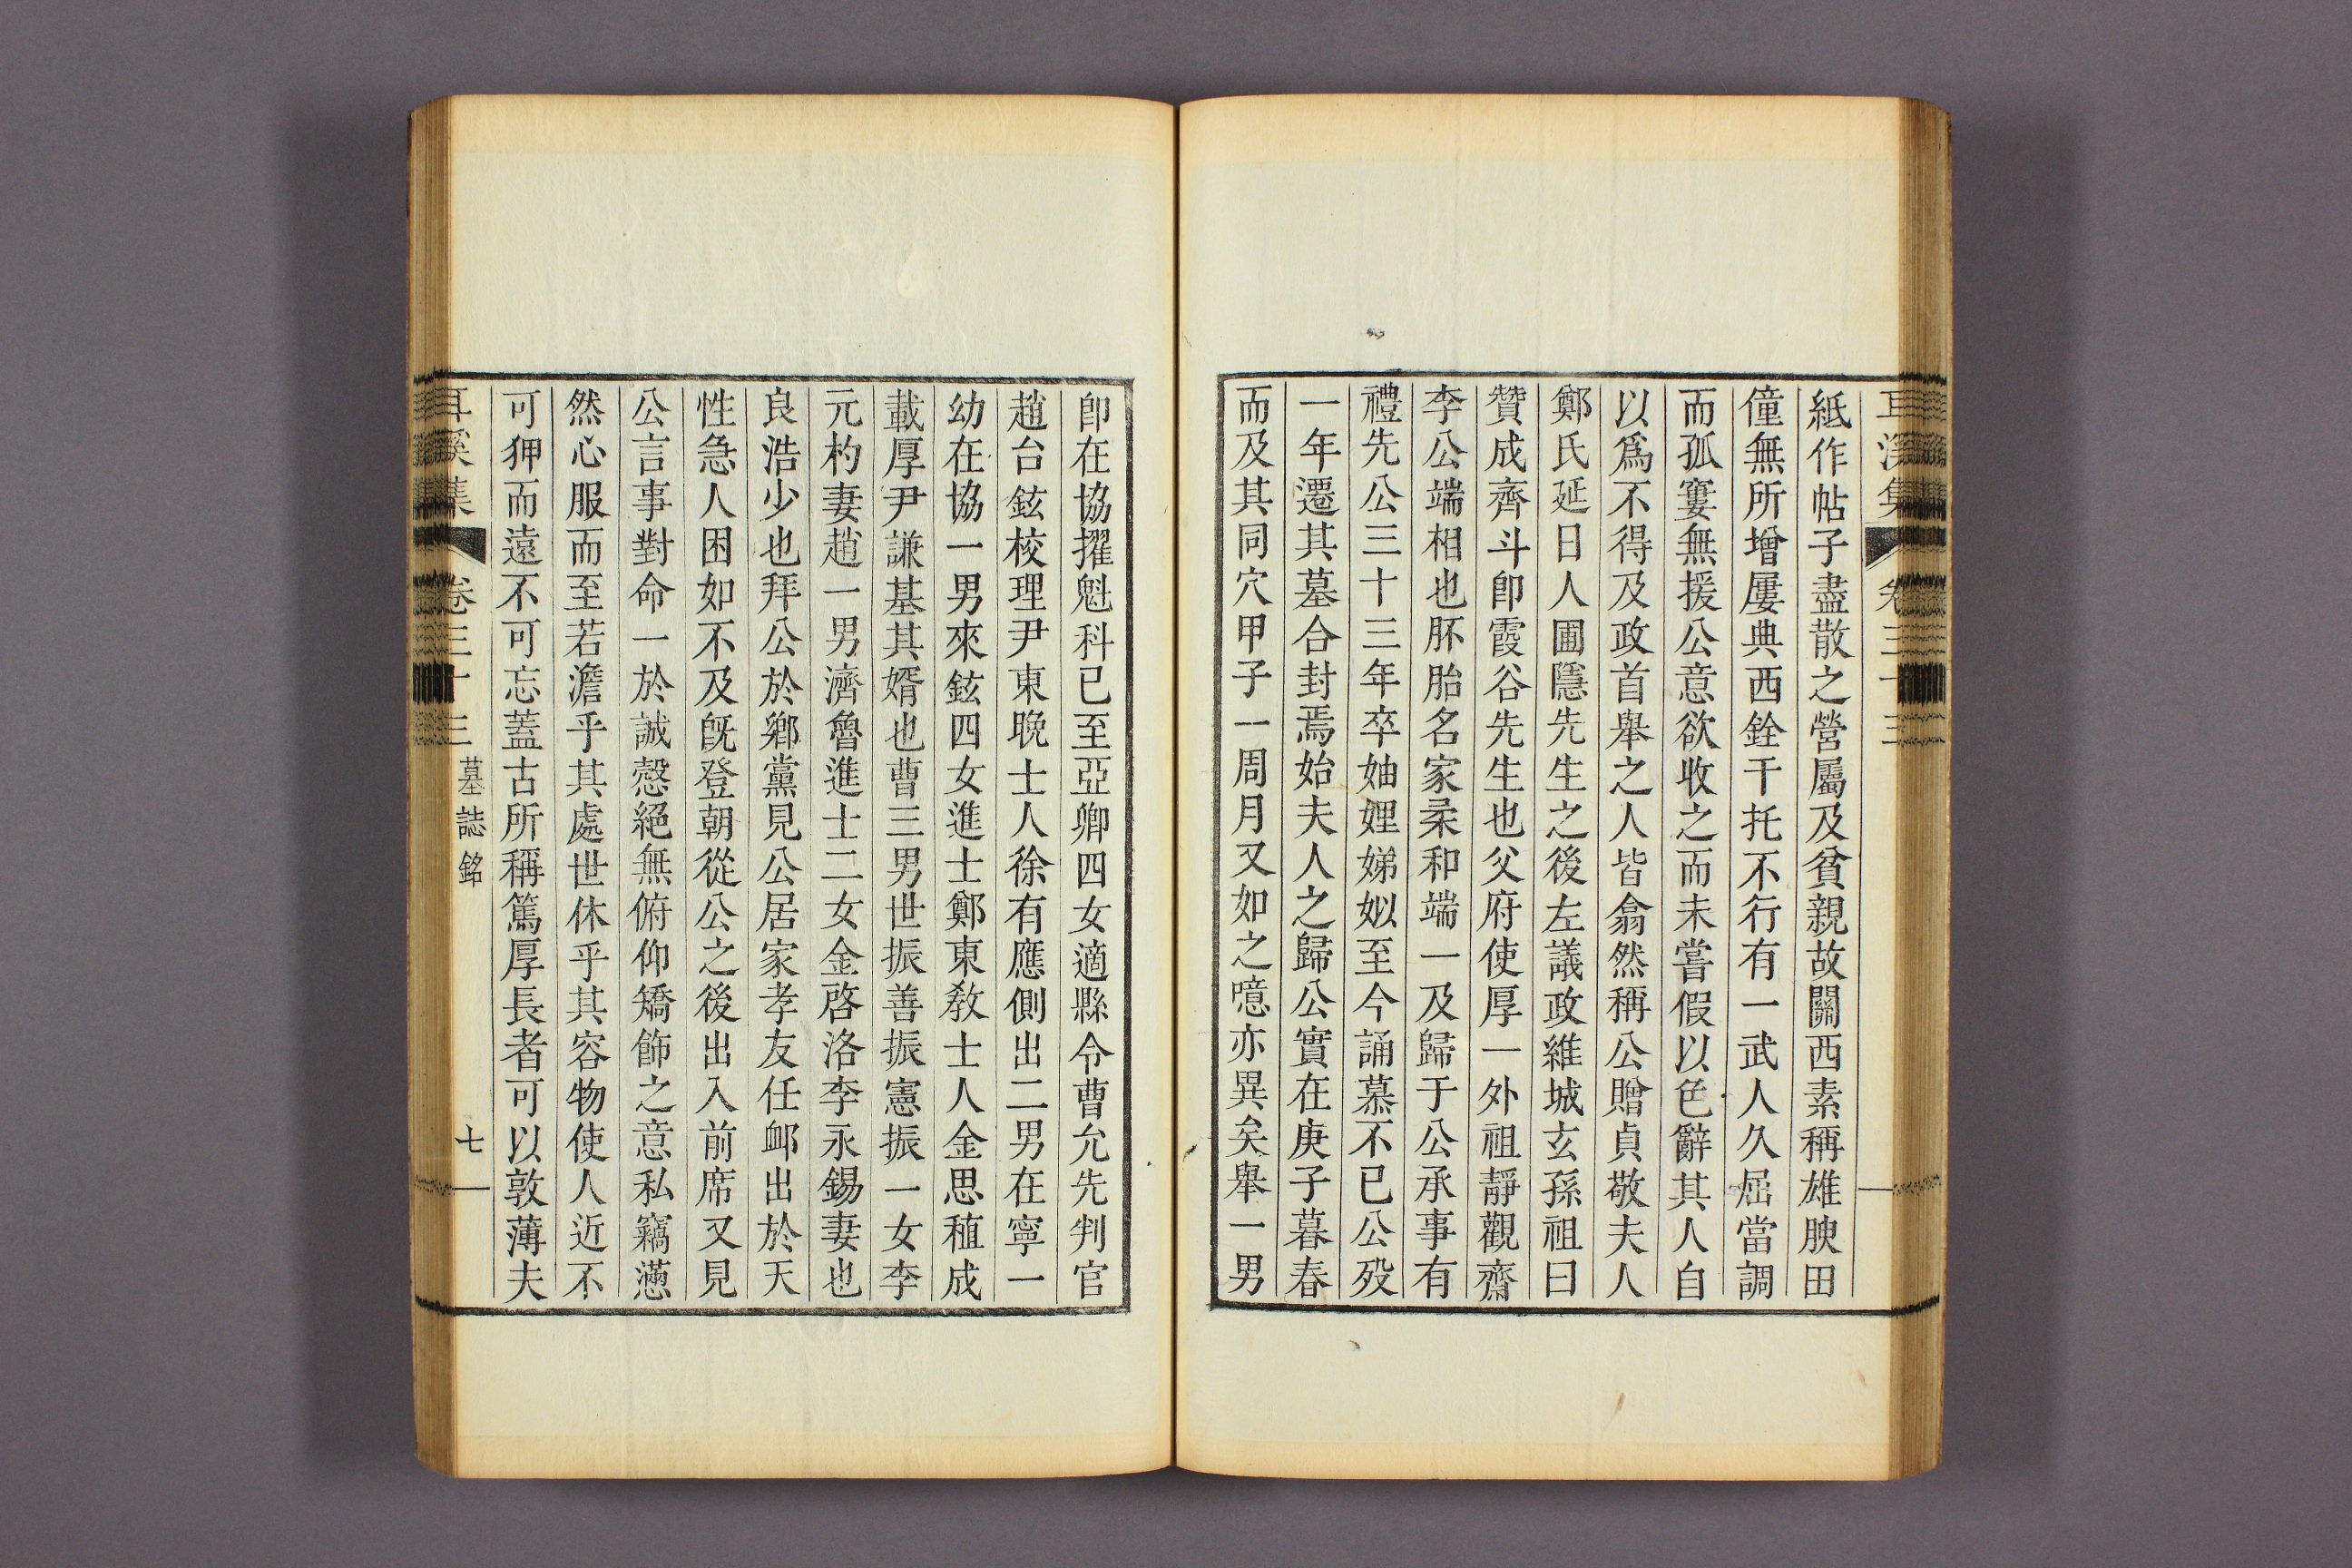 紙作帖子盡散之營屬及貧親故關西素稱雄腴田
僮無所增屢典西銓干托不行有一武人久屈當調
而孤寠無援公意欲收之而未嘗假以色辭其人自
以爲不得及政首舉之人皆翕然稱公贈貞敬夫人
鄭氏延日人圃隱先生之後左議政維城玄孫祖曰
贊成齊斗卽霞谷先生也父府使厚一外祖靜觀齋
李公端相也胚胎名家柔和端一及歸于公承事有
禮先公三十三年卒妯娌娣姒至今誦慕不已公歿
一年遷其墓合封焉始夫人之歸公實在庚子暮春
而及其同穴甲子一周月又如之噫亦異矣舉一男
卽在協擢魁科已至亞卿四女適縣令曹允先判官
趙台鉉校理尹東晩士人徐有應側出二男在寧一
幼在協一男來鉉四女進士鄭東教士人金思稙成
載厚尹謙基其婿也曹三男世振善振憲振一女李
元杓妻趙一男濟魯進士二女金啓洛李永錫妻也
良浩少也拜公於鄉黨見公居家孝友任卹出於天
性急人困如不及旣登朝從公之後出入前席又見
公言事對命一於誠慤絕無俯仰矯飾之意私竊懣
然心服而至若澹乎其處世休乎其容物使人近不
可狎而遠不可忘蓋古所稱篤厚長者可以敦薄夫
耳溪集
卷三十三
墓誌銘
七